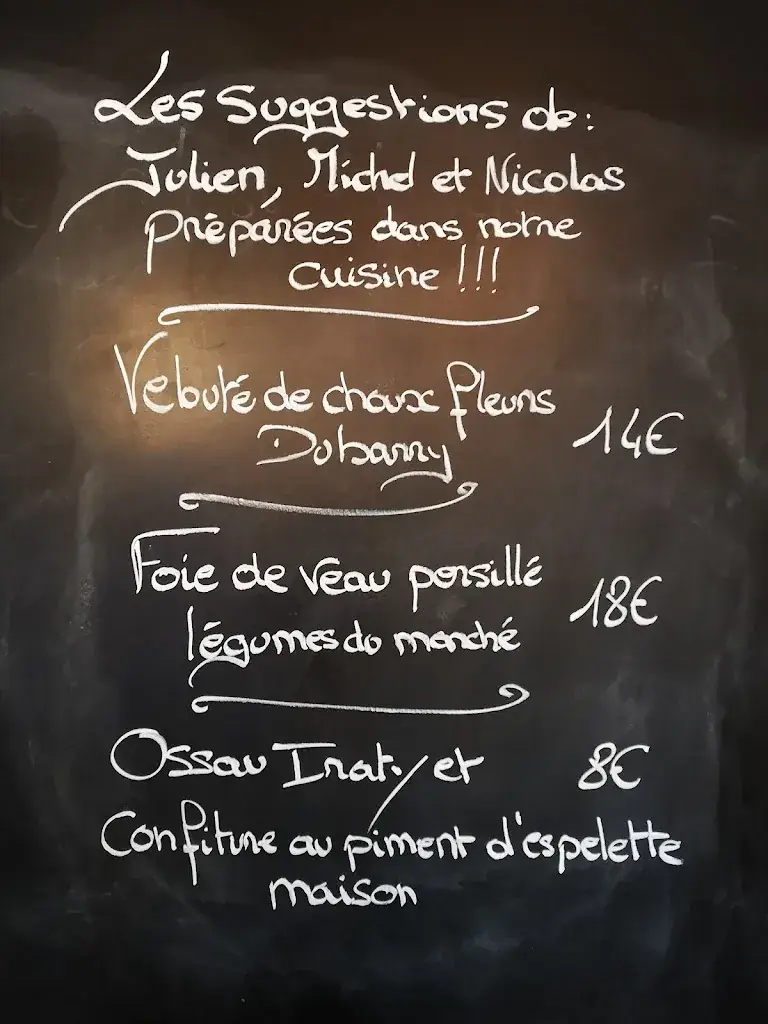 Les Suggestions de:
Julien, Michel et Nicolas
préparées dans notre
cuisine !!!
Velouté de choux fleurs
Dubarry
14€
Foie de veau persillé
légumes du marché
18€
Ossau Iraty et
8€
Confiture au piment d'espelette
maison